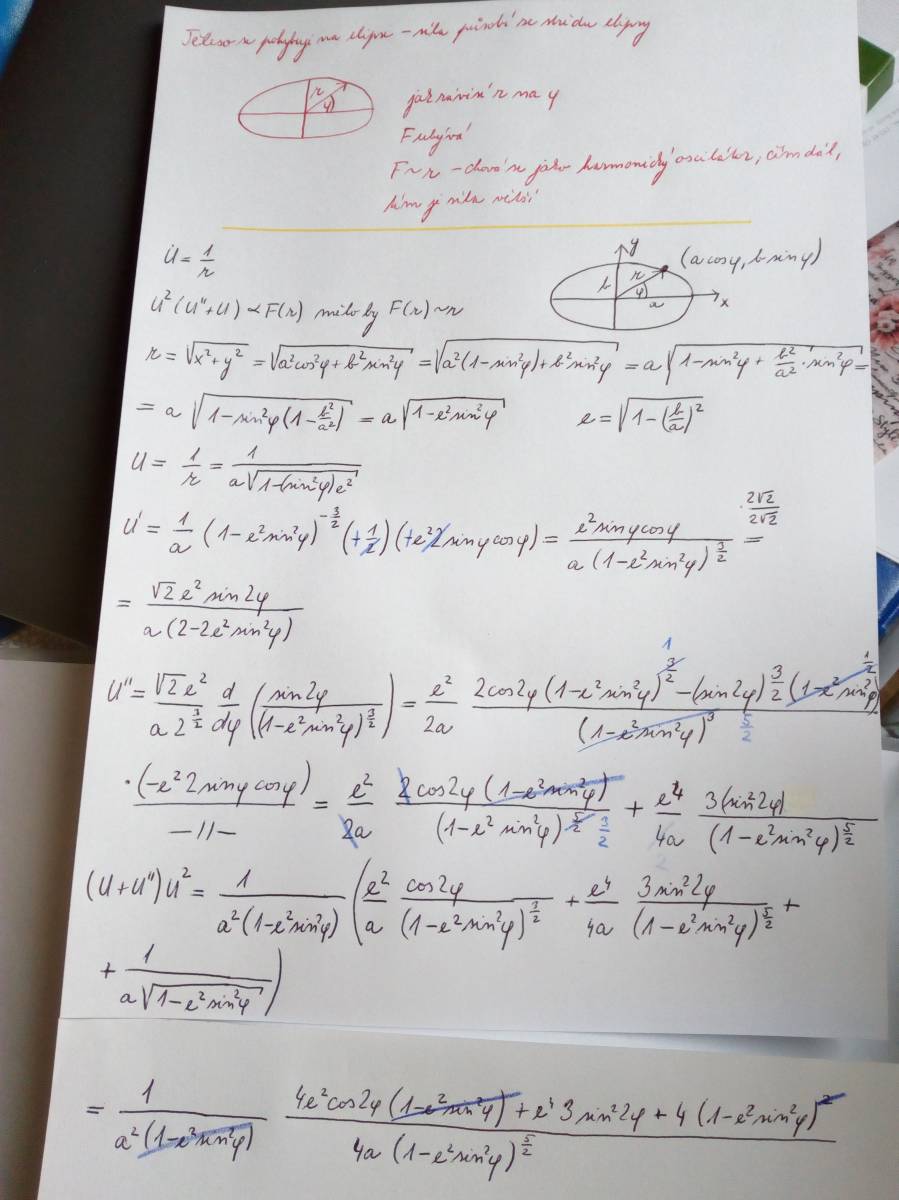 Těleso se pohybuje na elipse – síla působí ze středu elipsy
r φ
jak závisí r na φ
F ubývá
F ~ r – chová se jako harmonický oscilátor, čím dál,
tím je síla větší
u = 1/r
y (a cosφ, b sinφ)
b r φ a x
u²(u''+u) ∝ F(r) mělo by F(r) ~ r
r = √(x²+y²) = √(a²cos²φ + b²sin²φ) = √(a²(1−sin²φ)+b²sin²φ) = a√(1−sin²φ + b²/a² · sin²φ) =
= a√(1−sin²φ(1−b²/a²)) = a√(1−e²sin²φ) e = √(1−(b/a)²)
u = 1/r = 1/(a√(1−(sin²φ)e²))
u' = 1/a (1−e²sin²φ)^(−3/2) (+1/2)(+e²2sinφcosφ) = e²sinφcosφ/(a(1−e²sin²φ)^(3/2)) = ·2√2/2√2
= √2 e² sin2φ/(a(2−2e²sin²φ))
u'' = √2e²/(a 2^(3/2)) d/dφ (sin2φ/(1−e²sin²φ)^(3/2)) = e²/2a (2cos2φ(1−e²sin²φ)^(3/2) 1 −(sin2φ) 3/2 (1−e²sin²φ)^(1/2))/((1−e²sin²φ)³) 5/2
·(−e²2sinφcosφ)/(–//–) = e²/2a 2cos2φ(1−e²sin²φ)/((1−e²sin²φ)^(5/2)) 3/2 + e⁴/4a 3(sin²2φ)/((1−e²sin²φ)^(5/2))
(u+u'')u² = 1/(a²(1−e²sin²φ)) (e²/a cos2φ/((1−e²sin²φ)^(3/2)) + e⁴/4a 3sin²2φ/((1−e²sin²φ)^(5/2)) +
+ 1/(a√(1−e²sin²φ)))
= 1/(a²(1−e²sin²φ)) (4e²cos2φ(1−e²sin²φ) + e⁴3sin²2φ + 4(1−e²sin²φ)²)/(4a(1−e²sin²φ)^(5/2))